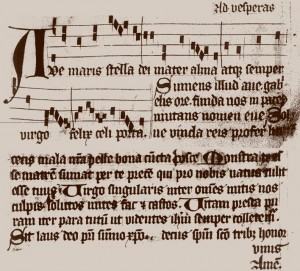 Ad vesperas
Ave maris stella dei mater alma atq semper
Sumens illud ave gab
elis ore funda nos in pace
mutans nomen eve Sol
virgo felix celi porta. ve vincla reis profer
cecis mala nra pelle bona cuncta posce Monstra te es
se matrem sumat per te prece qui pro nobis natus tulit
esse tuus Virgo singularis inter omnes mitis nos
culpis solutos mites fac & castos Vitam presta pu
ram iter para tutu ut videntes ihm semper colletem
Sit laus deo pri sumo xpo decus spui sco trib honor
unus
Ame.